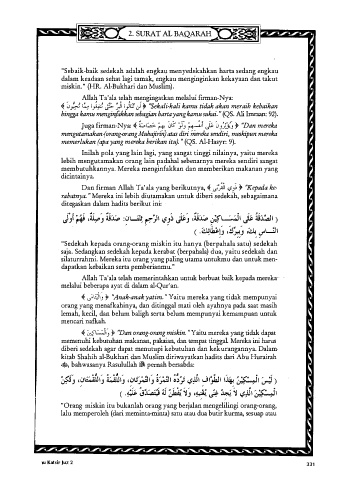 2. SURAT AL BAQARAH
"Sebaik-baik sedekah adalah engkau menyedekahkan harta sedang engkau
dalam keadaan sehat lagi tamak, engkau menginginkan kekayaan dan takut
miskin." (HR. Al-Bukhari dan Muslim).
Allah Ta'ala telah mengingatkan melalui firman-Nya:
﴿ لَن تَنَالُوا الْبِرَّ حَتَّى تُنفِقُوا مِمَّا تُحِبُّونَ ﴾ "Sekali-kali kamu tidak akan meraih kebaikan
hingga kamu menginfakkan sebagian harta yang kamu sukai." (QS. Ali Imraan: 92).
Juga firman-Nya: ﴿ وَيُؤْثِرُونَ عَلَى أَنفُسِهِمْ وَلَوْ كَانَ بِهِمْ خَصَاصَةٌ ﴾ "Dan mereka
mengutamakan (orang-orang Muhajirin) atas diri mereka sendiri, meskipun mereka
memerlukan (apa yang mereka berikan itu)." (QS. Al-Hasyr: 9).
Inilah pola yang lain lagi, yang sangat tinggi nilainya, yaitu mereka
lebih mengutamakan orang lain padahal sebenarnya mereka sendiri sangat
membutuhkannya. Mereka menginfakkan dan memberikan makanan yang
dicintainya.
Dan firman Allah Ta'ala yang berikutnya, ﴿ ذَوِي الْقُرْبَى ﴾ "Kepada ke-
rabatnya." Mereka ini lebih diutamakan untuk diberi sedekah, sebagaimana
ditegaskan dalam hadits berikut ini:
( الصَّدَقَةُ عَلَى الْمَسَاكِيْنِ صَدَقَةٌ، وَعَلَى ذَوِي الرَّحِمِ ثِنْتَانِ: صَدَقَةٌ وَصِلَةٌ، فَهُمْ أَوْلَى
النَّاسِ بِكَ، وَبِبِرِّكَ، وَإِعْطَائِكَ. )
"Sedekah kepada orang-orang miskin itu hanya (berpahala satu) sedekah
saja. Sedangkan sedekah kepada kerabat (berpahala) dua, yaitu sedekah dan
silaturrahmi. Mereka itu orang yang paling utama untukmu dan untuk men-
dapatkan kebaikan serta pemberianmu."
Allah Ta'ala telah memerintahkan untuk berbuat baik kepada mereka
melalui beberapa ayat di dalam al-Qur'an.
﴿ وَالْيَتَامَى ﴾ "Anak-anak yatim." Yaitu mereka yang tidak mempunyai
orang yang menafkahinya, dan ditinggal mati oleh ayahnya pada saat masih
lemah, kecil, dan belum baligh serta belum mempunyai kemampuan untuk
mencari nafkah.
﴿ وَالْمَسَاكِينَ ﴾ "Dan orang-orang miskin." Yaitu mereka yang tidak dapat
memenuhi kebutuhan makanan, pakaian, dan tempat tinggal. Mereka ini harus
diberi sedekah agar dapat menutupi kebutuhan dan kekurangannya. Dalam
kitab Shahih al-Bukhari dan Muslim diriwayatkan hadits dari Abu Hurairah
, bahwasanya Rasulullah ﷺ pernah bersabda:
( لَيْسَ الْمِسْكِيْنُ بِهَذَا الطَّوَّافِ الَّذِي تَرُدُّهُ التَّمْرَةُ وَالتَّمْرَتَانِ، وَاللُّقْمَةُ وَاللُّقْمَتَانِ، وَلَكِنَّ
الْمِسْكِيْنَ الَّذِي لاَ يَجِدُ غِنًى يُغْنِيْهِ، وَلاَ يُفْطَنُ لَهُ فَيُتَصَدَّقَ عَلَيْهِ. )
"Orang miskin itu bukanlah orang yang berjalan mengelilingi orang-orang,
lalu memperoleh (dari meminta-minta) satu atau dua butir kurma, sesuap atau
Katsir Juz 2
331